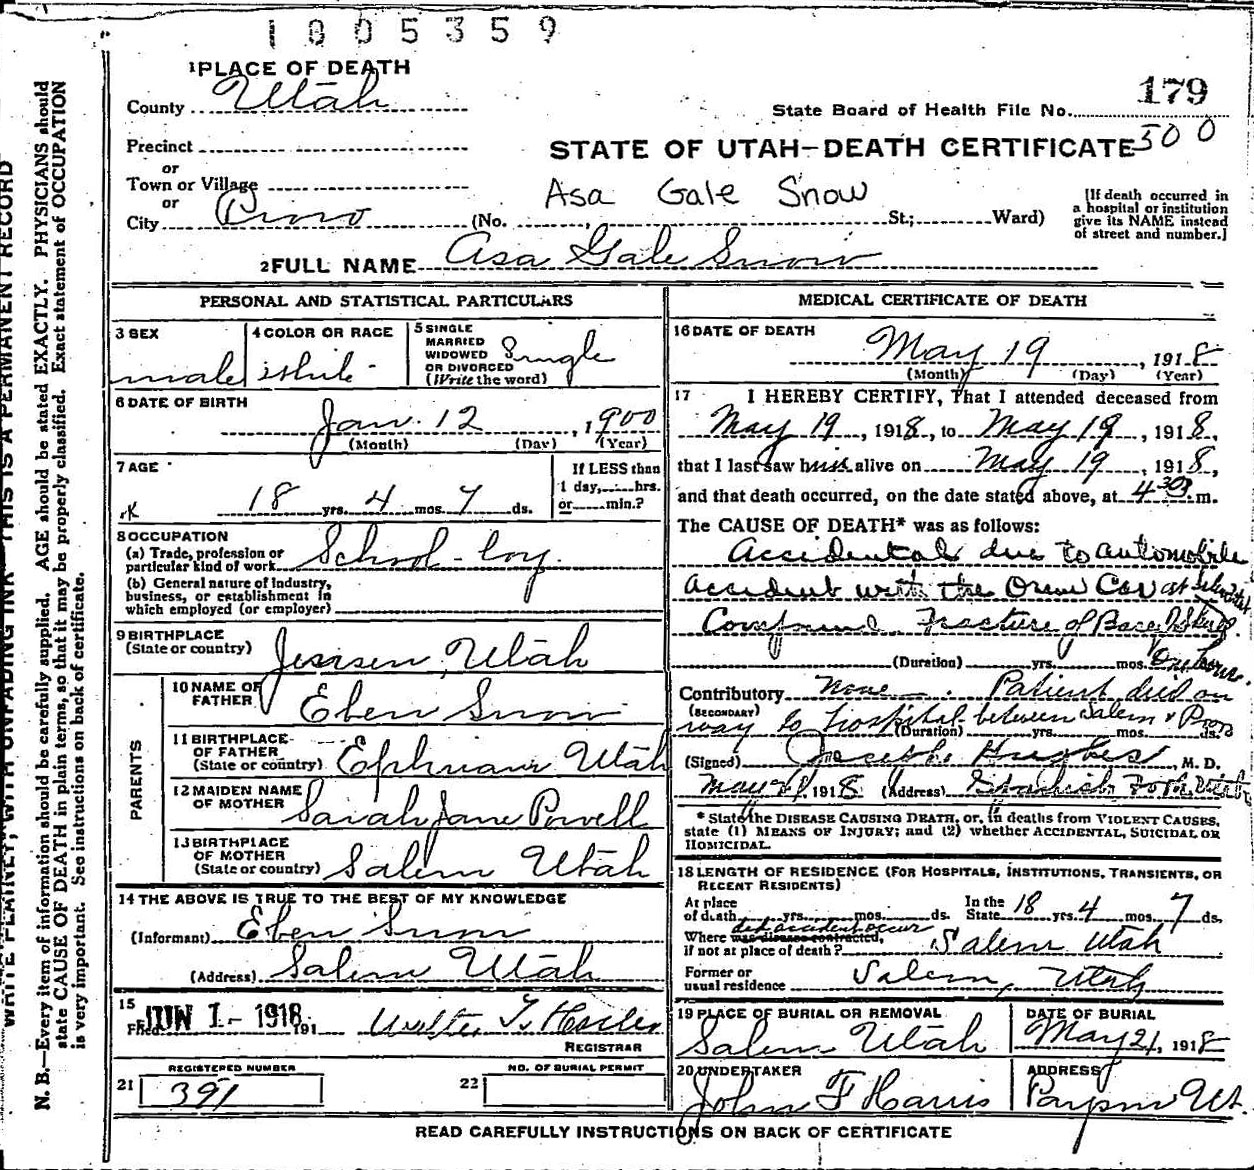 1005359
1 PLACE OF DEATH
County Utah
179
State Board of Health File No.
500
Precinct
or
Town or Village
or
City Provo
STATE OF UTAH—DEATH CERTIFICATE
Asa Gale Snow
(No. St.; Ward)
[If death occurred in
a hospital or institution
give its NAME instead
of street and number.]
2 FULL NAME Asa Gale Snow
PERSONAL AND STATISTICAL PARTICULARS
3 SEX
male
4 COLOR OR RACE
white
5 SINGLE
MARRIED
WIDOWED
OR DIVORCED
(Write the word)
Single
6 DATE OF BIRTH
Jan. 12, 1900
(Month) (Day) (Year)
7 AGE
18 yrs. 4 mos. 7 ds.
If LESS than
1 day, hrs.
or min.?
8 OCCUPATION
(a) Trade, profession or
particular kind of work School-boy
(b) General nature of industry,
business, or establishment in
which employed (or employer)
9 BIRTHPLACE
(State or country) Jensen, Utah
PARENTS
10 NAME OF
FATHER Eben Snow
11 BIRTHPLACE
OF FATHER
(State or country) Ephriam Utah
12 MAIDEN NAME
OF MOTHER Sarah Jane Powell
13 BIRTHPLACE
OF MOTHER
(State or country) Salem Utah
14 THE ABOVE IS TRUE TO THE BEST OF MY KNOWLEDGE
(Informant) Eben Snow
(Address) Salem Utah
15
Filed JUN 1 - 1918 191
Walter T. Hasler
REGISTRAR
21 REGISTERED NUMBER
391
22 NO. OF BURIAL PERMIT
MEDICAL CERTIFICATE OF DEATH
16 DATE OF DEATH
May 19, 1918
(Month) (Day) (Year)
17 I HEREBY CERTIFY, That I attended deceased from
May 19, 1918, to May 19, 1918,
that I last saw him alive on May 19, 1918,
and that death occurred, on the date stated above, at 4 30 m.
The CAUSE OF DEATH* was as follows:
Accidental due to automobile
accident with the Orem Car at
Compound Fracture of Base of Skull.
(Duration) yrs. mos. One hour.
Contributory None. Patient died on
(SECONDARY)
way to hospital between Salem & Provo
(Duration) yrs. mos. ds.
(Signed) Hughes, M. D.
May 21 1918 (Address) Spanish Fork, Utah
* State the DISEASE CAUSING DEATH, or, in deaths from VIOLENT CAUSES,
state (1) MEANS OF INJURY; and (2) whether ACCIDENTAL, SUICIDAL OR
HOMICIDAL.
18 LENGTH OF RESIDENCE (FOR HOSPITALS, INSTITUTIONS, TRANSIENTS, OR
RECENT RESIDENTS)
At place
of death yrs. mos. ds.
In the
State 18 yrs. 4 mos. 7 ds.
did accident occur
Where was disease contracted,
if not at place of death? Salem Utah
Former or
usual residence Salem, Utah
19 PLACE OF BURIAL OR REMOVAL
Salem Utah
DATE OF BURIAL
May 21, 1918
20 UNDERTAKER
John F Harris
ADDRESS
Payson Ut.
READ CAREFULLY INSTRUCTIONS ON BACK OF CERTIFICATE
WRITE PLAINLY, WITH UNFADING INK—THIS IS A PERMANENT RECORD
N. B.—Every item of information should be carefully supplied. AGE should be stated EXACTLY. PHYSICIANS should
state CAUSE OF DEATH in plain terms, so that it may be properly classified. Exact statement of OCCUPATION
is very important. See instructions on back of certificate.